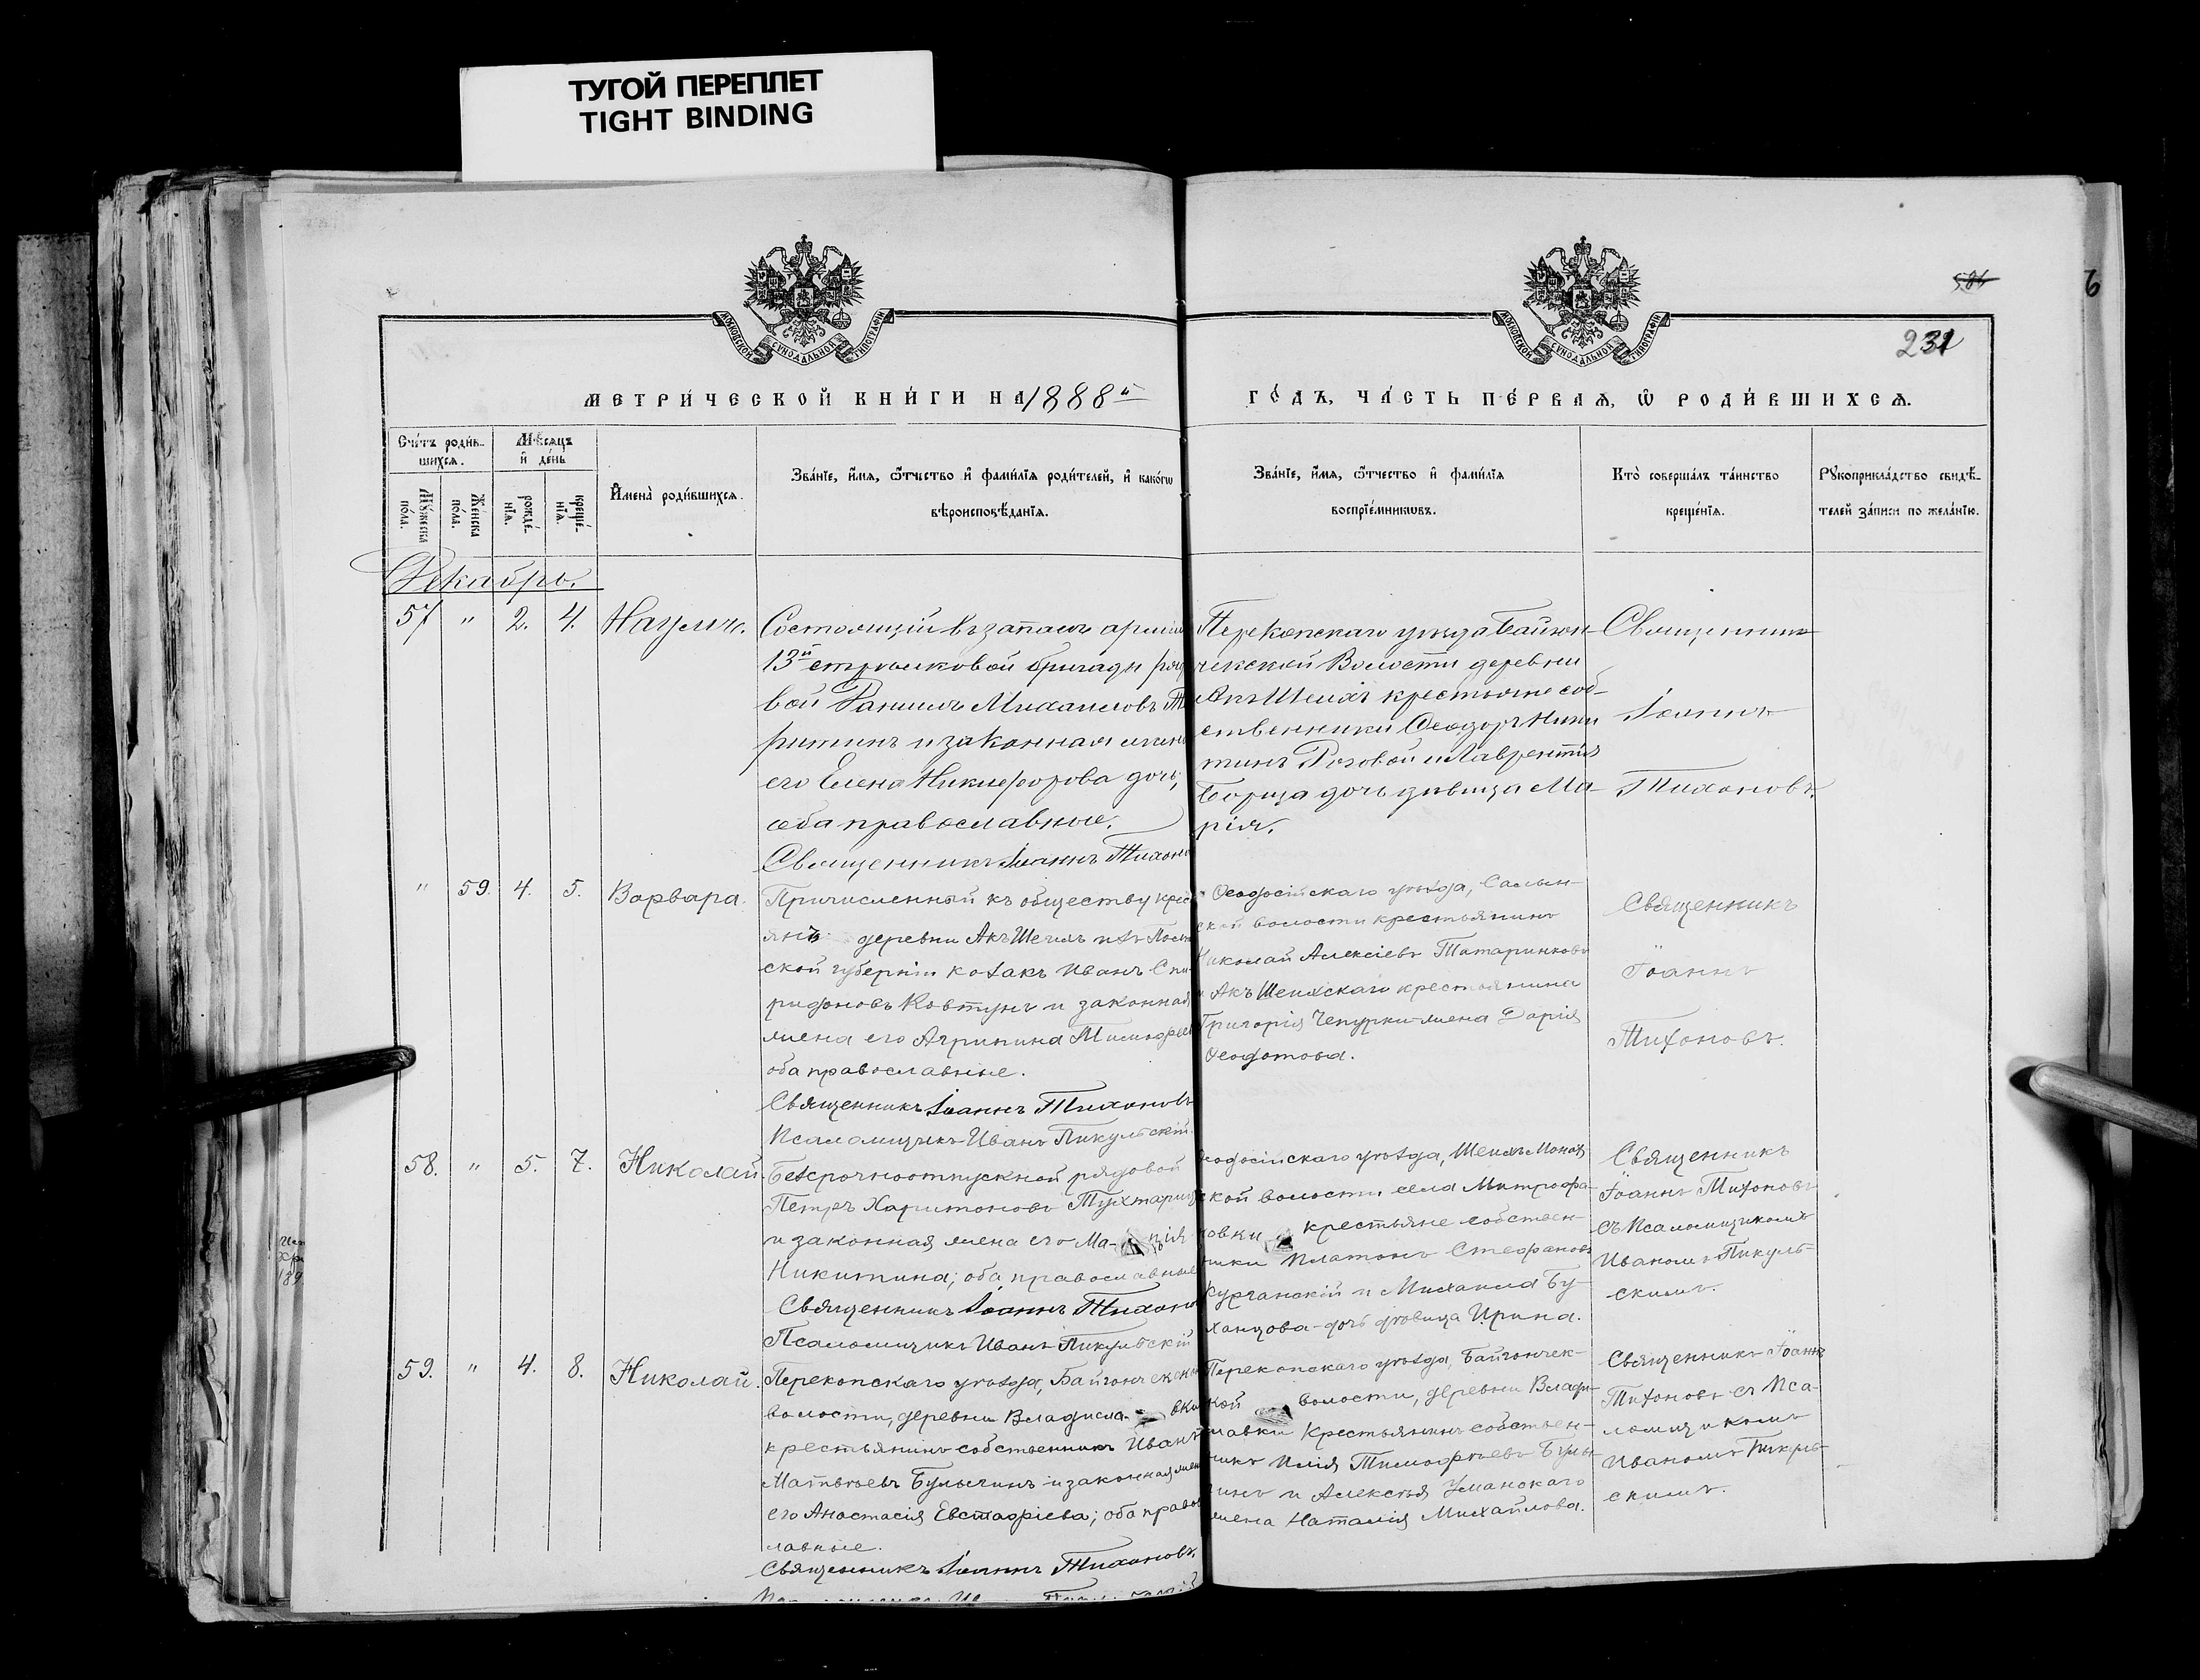 ТУГОЙ ПЕРЕПЛЕТ
TIGHT BINDING
МОСКОВСКОЙ СѴНОДАЛЬНОЙ ТИПОГРАФІИ
МОСКОВСКОЙ СѴНОДАЛЬНОЙ ТИПОГРАФІИ
504
6
231
МЕТРИ́ЧЕСКОЙ КНИ́ГИ НА 1888й
ГО́ДЪ, ЧА́СТЬ ПЕ́РВАЯ, Ѽ РОДИ́ВШИХСЯ.
Сче́тъ роди́в-
шихся.
Мѣ́сяцъ
и҆ де́нь
Мꙋ́жеска
по́ла.
Же́нска
по́ла.
рожде́-
нїя.
креще́-
нїя.
И҆мена̀ роди́вшихся.
Зва́нїе, и҆́мя, ѻ҆́тчество и҆ фами́лїя роди́телей, и҆ како́гѡ
вѣроисповѣ́данїя.
Зва́нїе, и҆́мя, ѻ҆́тчество и҆ фами́лїя
воспрїе́мникѡвъ.
Кто̀ соверша́лъ та́инство
креще́нїя.
Рꙋкоприкла́дство свидѣ́-
телей за́писи по жела́нїю.
Декабрь.
57 " 2. 4. Наумъ.
Состоящій въ запасѣ арміи
13й стрѣлковой бригады ряд
вой Даніилъ Михаиловъ
и законная жена
его Елена Никифорова дочь;
оба православные.
Священникъ Іоаннъ Тихоно
Перекопскаго уѣзда Байгон-
чекской Волости деревни
Акъ Шеихъ крестьяне соб-
ственники Ѳеодоръ Ники
тинъ Розовой и Лаврентія
Борца дочь дѣвица Ма-
рія.
Священникъ
Іоаннъ
Тихоновъ.
" 59. 4. 5. Варвара.
Причисленный къ обществу крес
янъ деревни Акъ Шеихъ изъ
ской губерніи козакъ Иванъ Спи
ридоновъ Ковтунъ и законная
жена его Агрипина Тимофее
оба православные.
Священникъ Іоаннъ Тихоновъ
Псаломщикъ Иванъ Пикульскій.
Ѳеодосійскаго уѣзда,
ской волости крестьянинъ
Николай Алексіевъ Татаринковъ
и Акъ Шеихскаго крестьянина
Григорія Чепурки жена Дарія
Ѳеодотова.
Священникъ
Іоаннъ
Тихоновъ.
58. " 5. 7. Николай.
Безсрочноотпускной рядовой
Петръ Харитоновъ
и законная жена его Ма- рія
Никитина; оба православные
Священникъ Іоаннъ Тихоно
Псаломщикъ Иванъ Пикульскій
еодосійскаго уѣзда, Шеихъ Монах
ской волости села Митрофа-
новки крестьяне собствен-
ники Платонъ Стефановъ
Курганскій и Михаила Бу-
ханцова дочь дѣвица Ирина.
Священникъ
Іоаннъ Тихоновъ
съ Псаломщикомъ
Иваномъ Пикуль-
скимъ.
59. " 4. 8. Николай.
Перекопскаго уѣзда, Байгончекской
волости, деревни Владисла- вки
крестьянинъ собственникъ Иванъ
Матвѣевъ Булычинъ и законная жен
его Анастасія Евстафіева; оба право
лавные.
Священникъ Іоаннъ Тихоновъ.
Перекопскаго уѣзда, Байгончек-
кой волости, деревни Влади-
лавки Крестьянинъ собствен-
никъ Илія Тимофѣевъ Булы-
чинъ и Алексѣя Уманскаго
жена Наталія Михайлова.
Священникъ Іоаннъ
Тихоновъ съ Пса-
ломщикомъ
Иваномъ Пикуль-
скимъ.